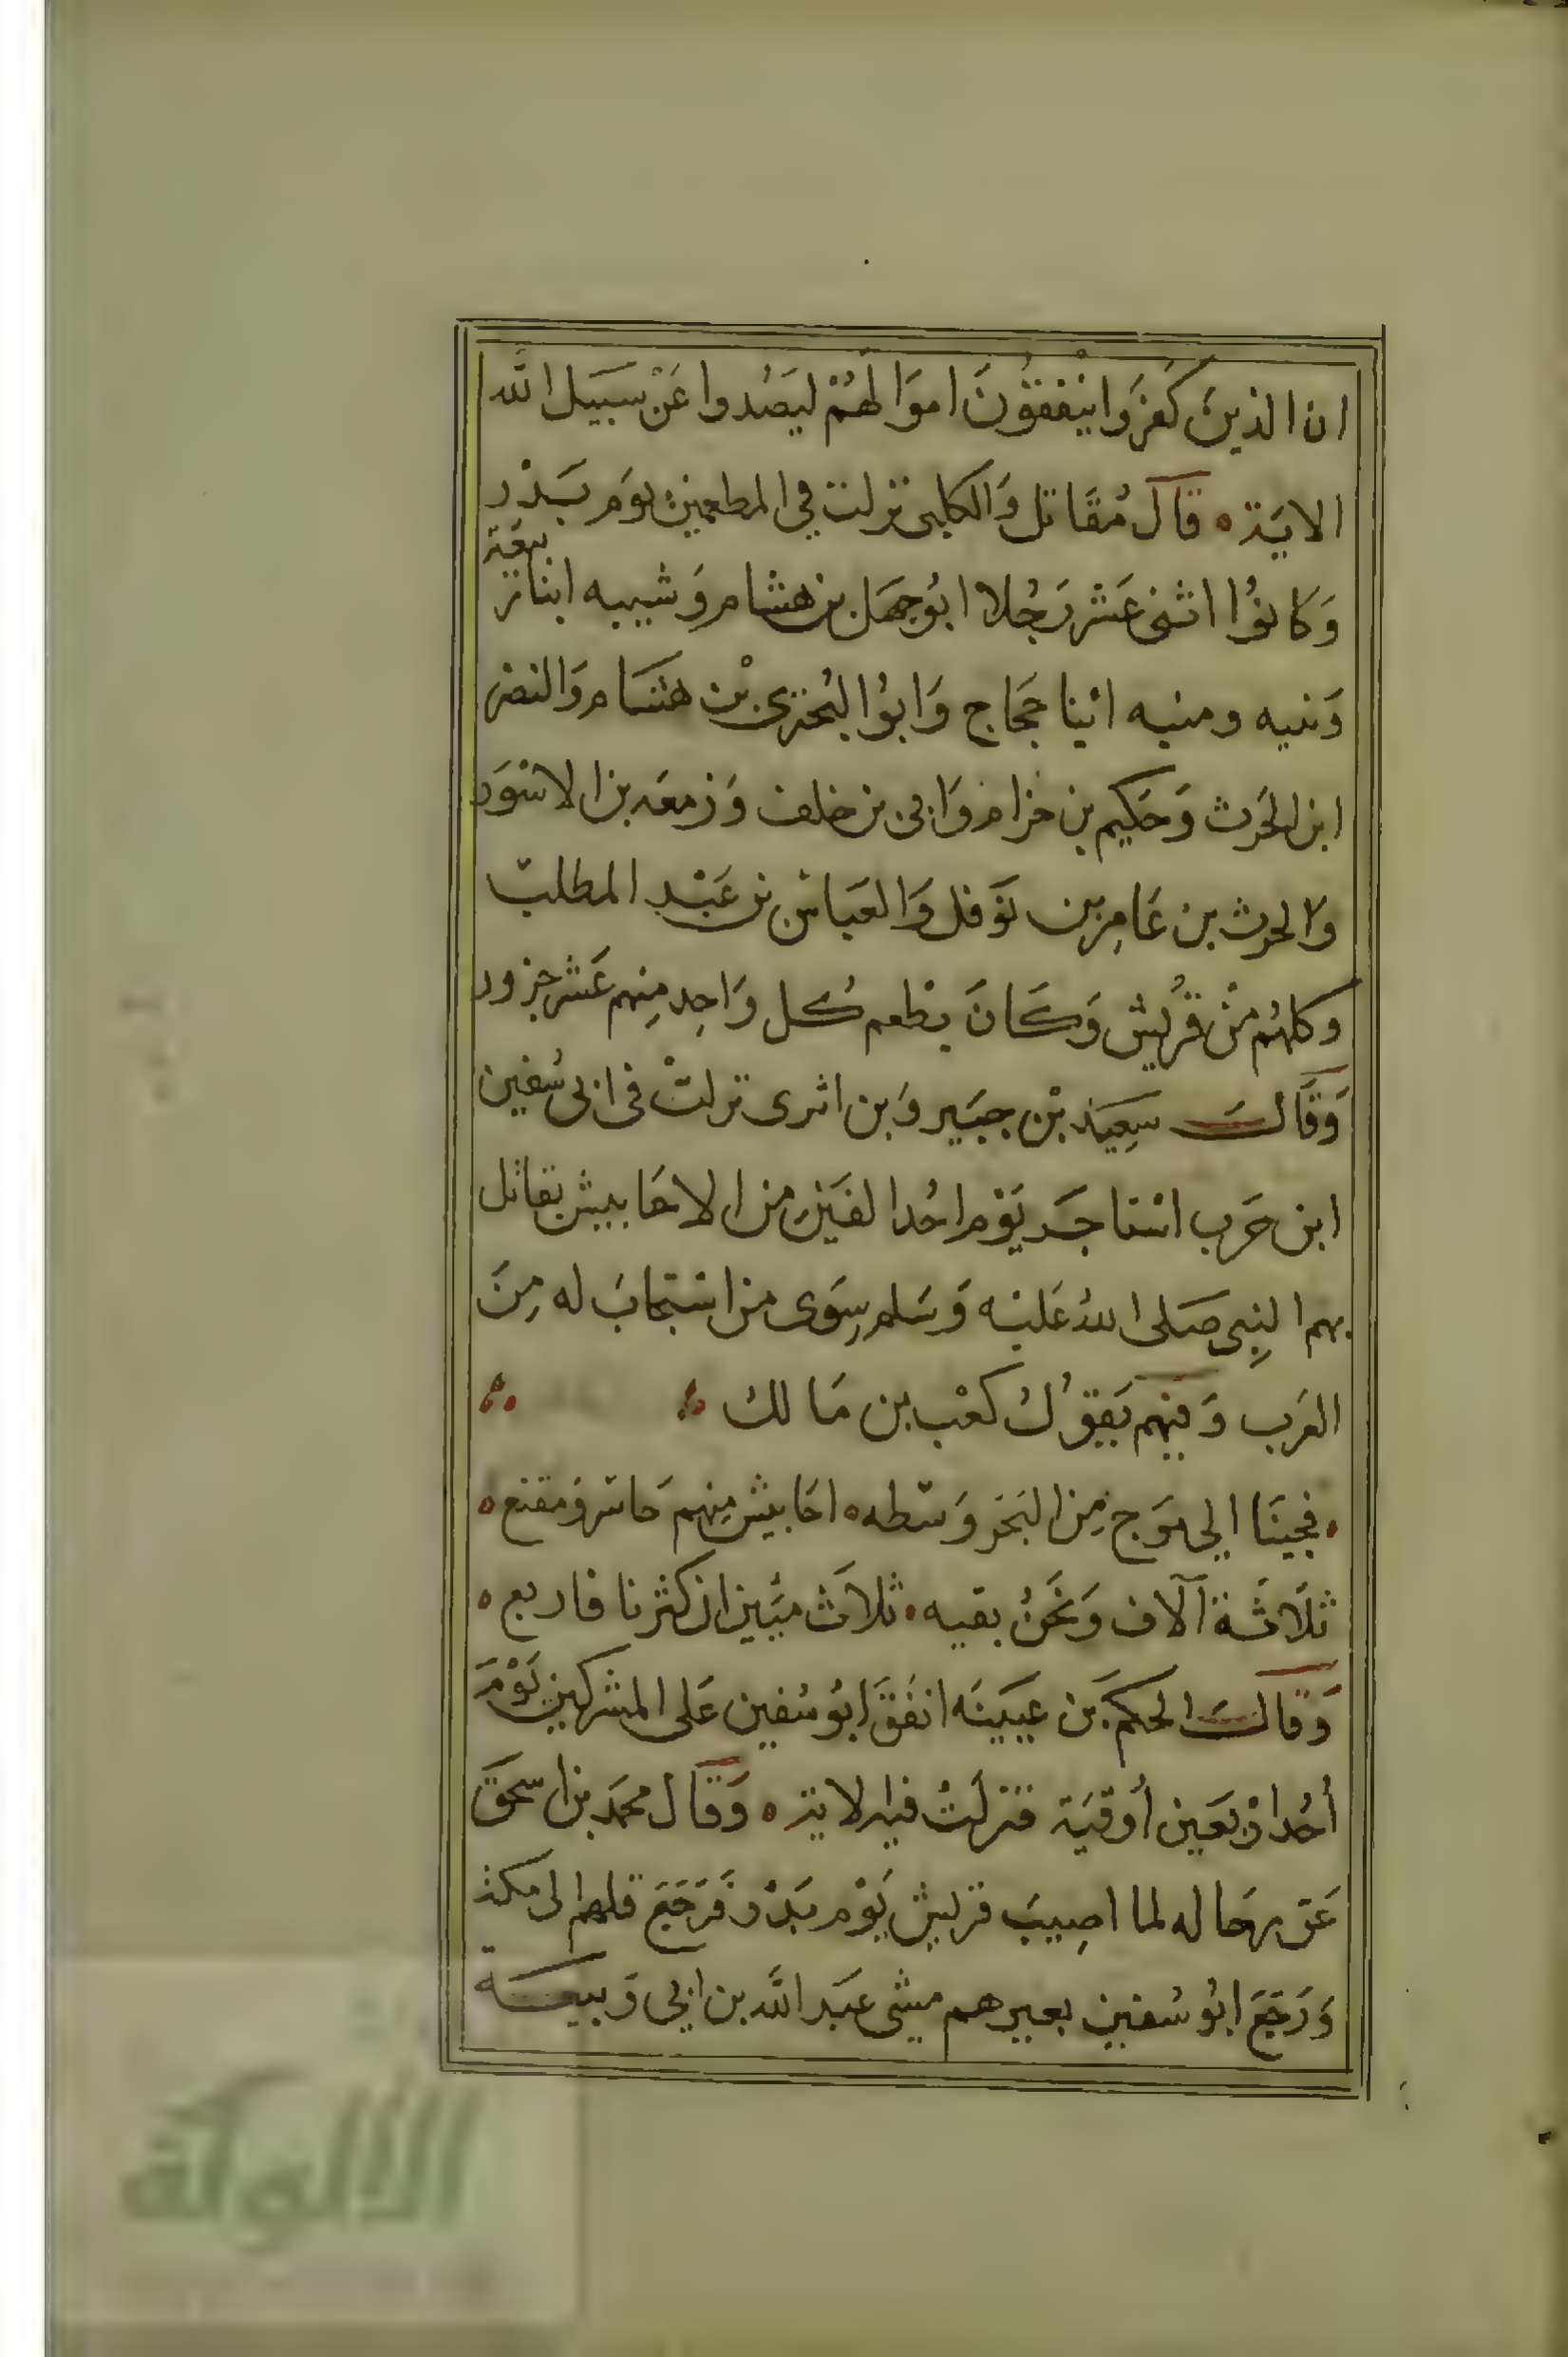 ان الذين كفروا ينفقون اموالهم ليصدوا عن سبيل الله
الاية ٥ قال مقاتل والكلبى نزلت في المطعمين يوم بدر
وكانوا اثنى عشر رجلا ابو جهل بن هشام وشيبه ابنا
ونبيه ومنبه ابنا حجاج وابوا البخترى بن هشام والنضر
ابن الحرث وحكيم بن حزام وابى بن خلف وزمعه بن الاسود
والحرث بن عامر بن نوفل والعباس بن عبد المطلب
وكلهم من قريش وكان يطعم كل واحد منهم عشر جزور
وقال سعيد بن جبير وبن اثرى نزلت فى ابى سفين
ابن حرب استاجر يوم احد الفين من الاحابيش يقاتل
بهم النبي صلى الله عليه وسلم سوى من استجاب له من
العرب وفيهم يقول كعب بن مالك
فجينا الي موج من البحر وسطه ٥ احابيش منهم حاسر ومقنع ٥
ثلاثة آلاف ونحن بقيه ٠ ثلاث ميين ان كثرنا فاربع ٥
وقال الحكم بن عيينه انفق ابو سفين على المشركين يوم
أحد اربعين أوقية فنزلت فيه الاية ٥ وقال محمد بن اسحق
عن رجاله لما اصيب قريش يوم بدر فرجع فلهم الى مكة
ورجع ابو سفين بعيرهم ميشى عبد الله بن ابي ربيعة